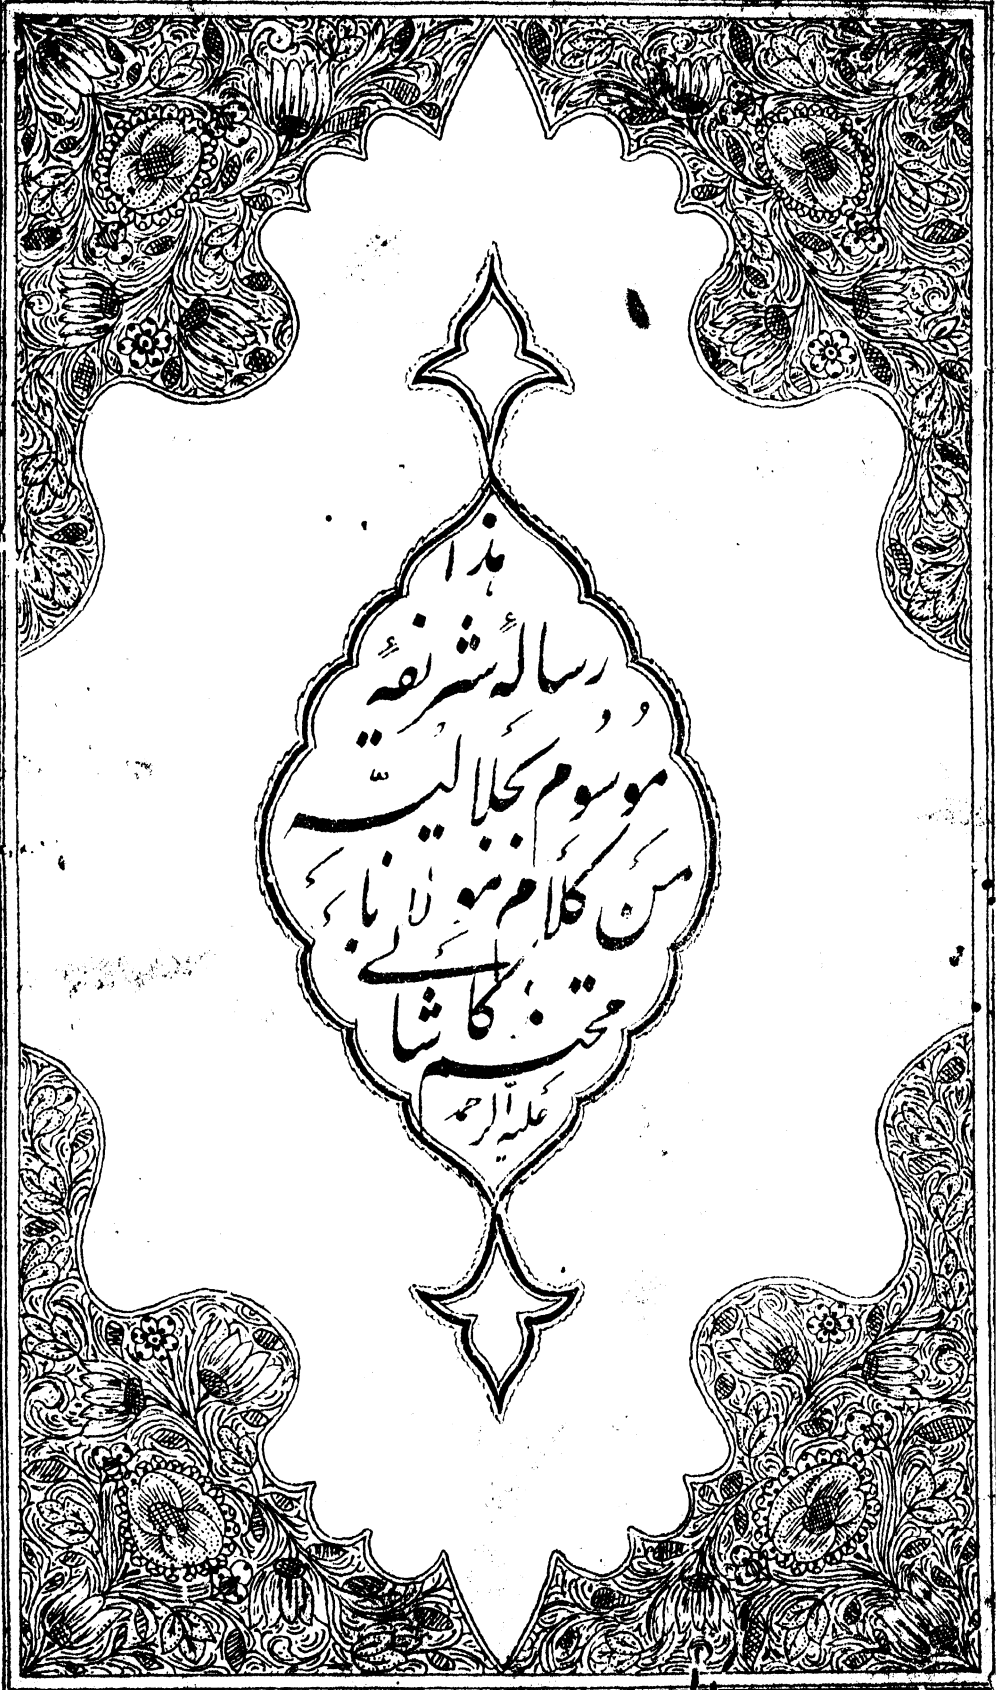 هذا
رسالهٔ شریفهٔ
موسوم بجلالیّه
من کلام مولانا
محتشم کاشانی
علیه الرحمه